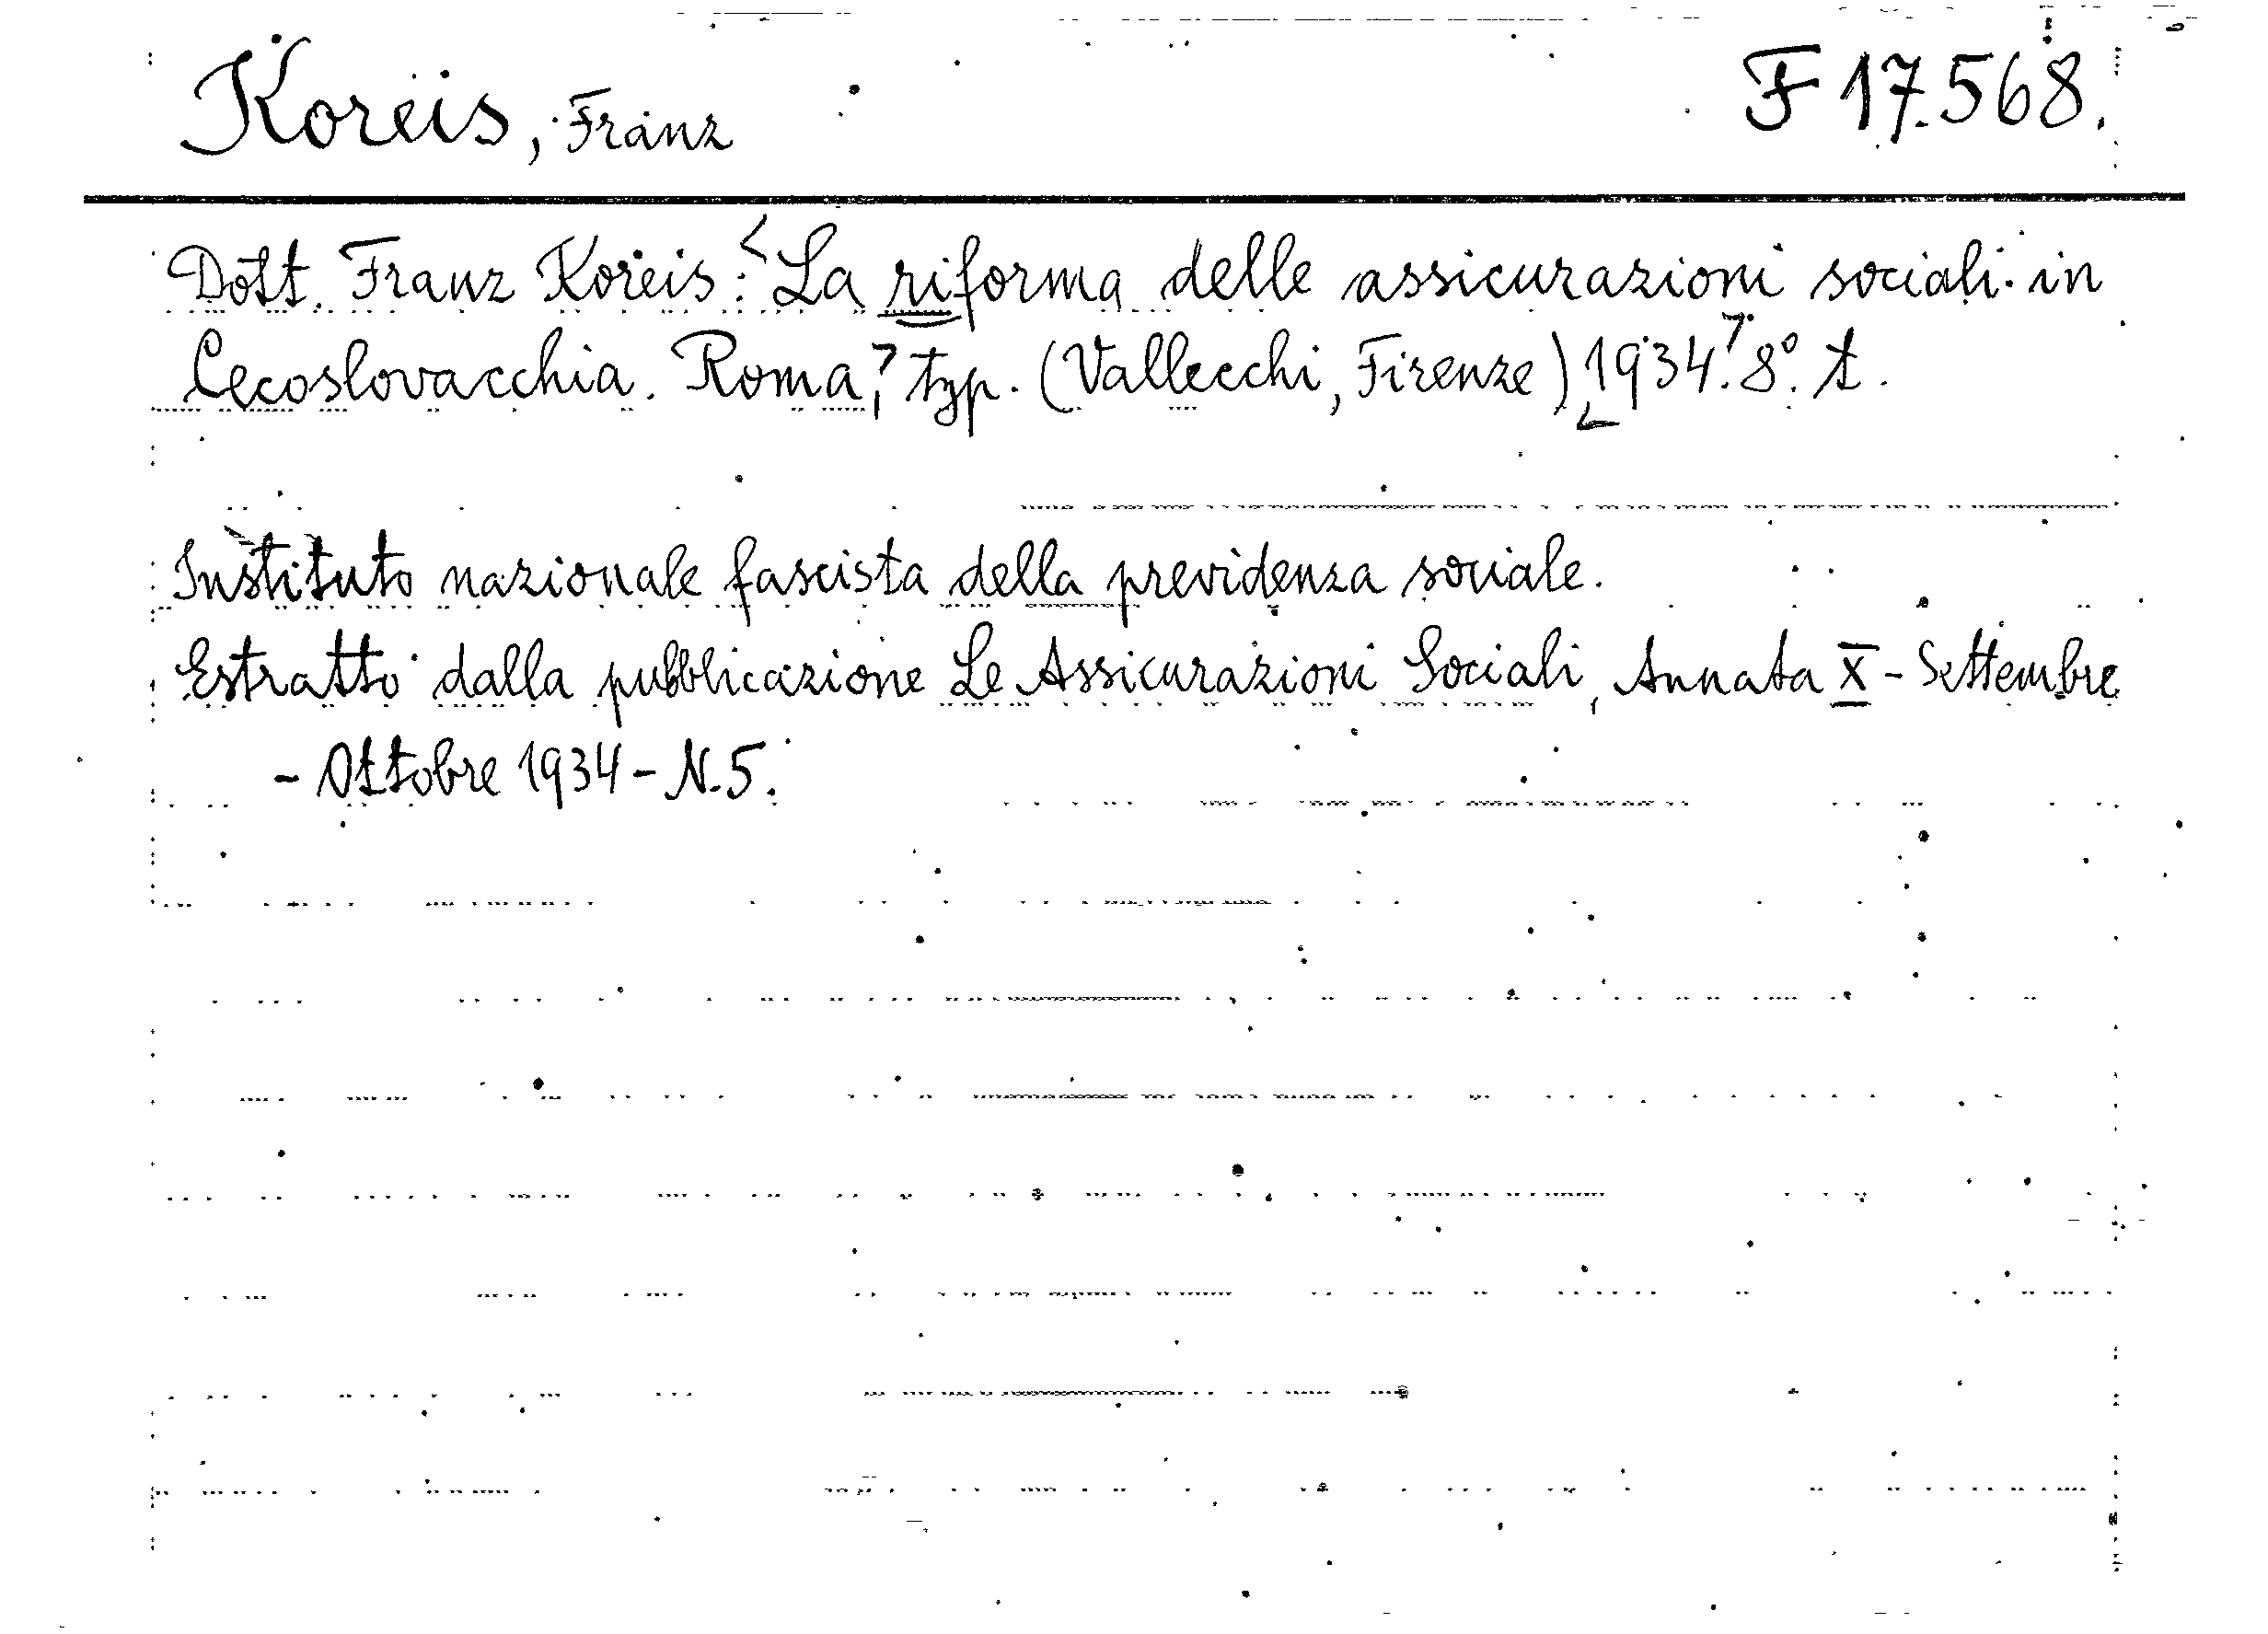 Koreis, Franz
F 17.568.
Dott. Franz Koreis: La riforma delle assicurazioni sociali in
Cecoslovacchia. Roma, typ. (Vallecchi, Firenze) 1934. 8°. t.
Instituto nazionale fascista della previdenza sociale.
Estratto dalla pubblicazione Le Assicurazioni Sociali, Annata X - Settembre
- Ottobre 1934 - N. 5.